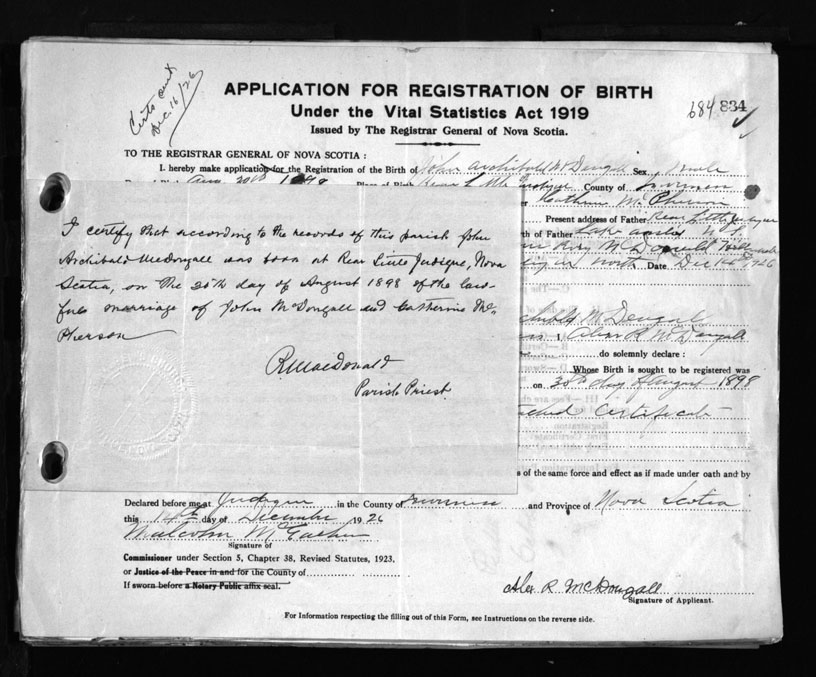 Certs sent
Dec. 16/26
APPLICATION FOR REGISTRATION OF BIRTH
Under the Vital Statistics Act 1919
Issued by The Registrar General of Nova Scotia.
684 834
TO THE REGISTRAR GENERAL OF NOVA SCOTIA:
I hereby make application for the Registration of the Birth of John Archibald McDougall Sex male
Aug. 20th 1898 Place of Birth Rear L. Judique County of Inverness
Catherine McPherson
Present address of Father Rear Little Judique
th of Father Lake N.S.
McDonald
north Date Dec 14th 1926
I certify that according to the records of this parish John
Archibald McDougall was born at Rear Little Judique, Nova
Scotia, on the 20th day of August 1898 of the law-
ful marriage of John McDougall and Catherine Mc
Pherson
R MacDonald
Parish Priest.
chibald McDougall
I, Alex R McDougall
do solemnly declare:
Whose Birth is sought to be registered was
on 20th day of August 1898
tached Certificate
s of the same force and effect as if made under oath and by
Declared before me at Judique in the County of Inverness and Province of Nova Scotia
this 14th day of December 1926
Malcolm McEachern
Signature of
Commissioner under Section 5, Chapter 38, Revised Statutes, 1923.
or Justice of the Peace in and for the County of
If sworn before a Notary Public affix seal.
Alex R McDougall
Signature of Applicant.
For Information respecting the filling out of this Form, see Instructions on the reverse side.